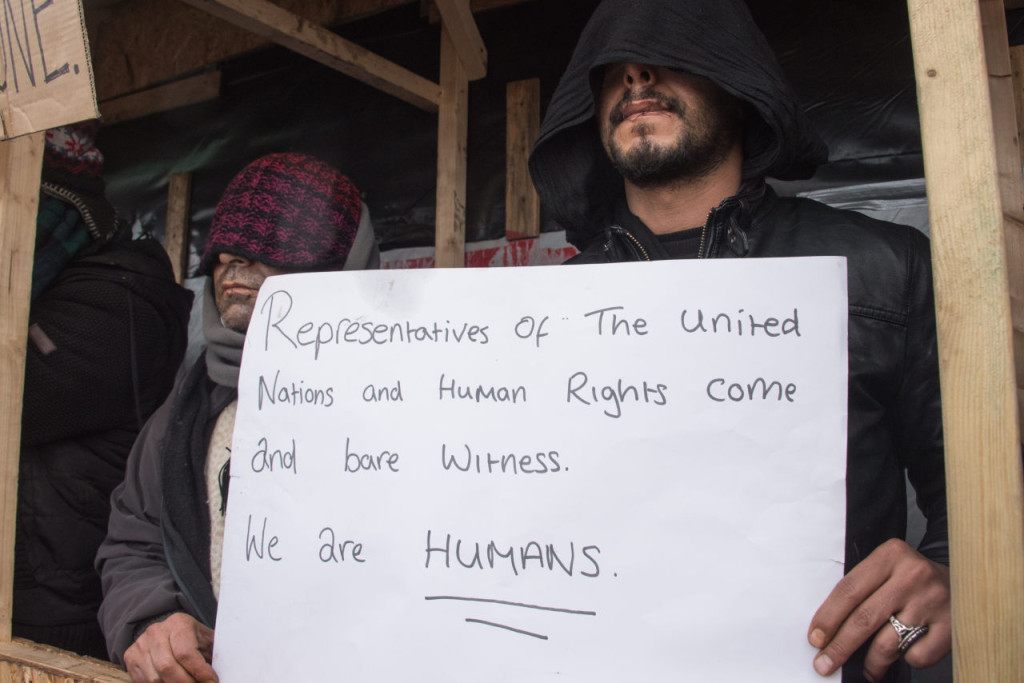 ONE.
Representatives Of The United
Nations and Human Rights come
and bare Witness.
We are HUMANS.